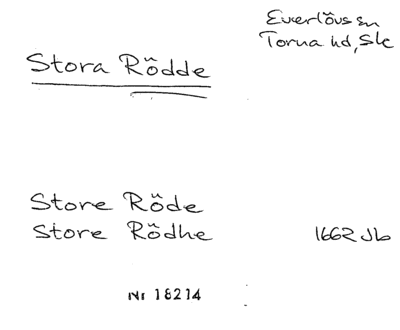 Everlövs sn
Torna hd, Sk
Stora Rödde
Store Röde
Store Rödhe 1662 Jb
Nr 18214